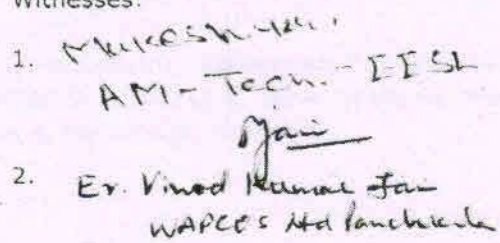 Witnesses:
1. Mukesh
AM- Tech. - EESL
Jain
2. Er. Vinod Kumar Jain
WAPCOS Ltd Panchkula